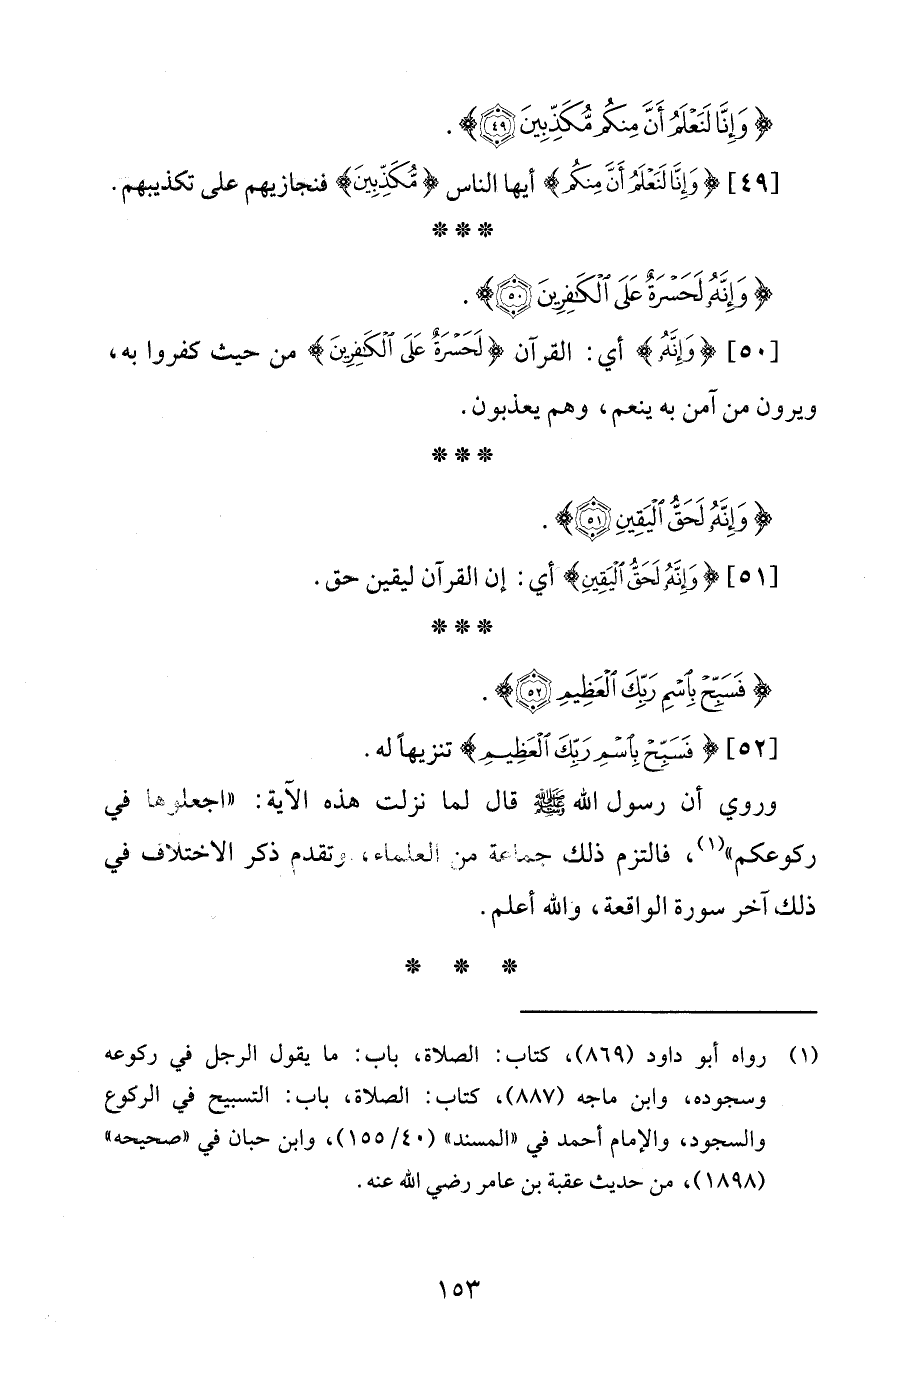 ﴿ وَإِنَّا لَنَعْلَمُ أَنَّ مِنكُم مُّكَذِّبِينَ ﴿٤٩﴾ ﴾ .
[٤٩] ﴿ وَإِنَّا لَنَعْلَمُ أَنَّ مِنكُم ﴾ أيها الناس ﴿ مُّكَذِّبِينَ ﴾ فنجازيهم على تكذيبهم.
* * *
﴿ وَإِنَّهُۥ لَحَسْرَةٌ عَلَى ٱلْكَٰفِرِينَ ﴿٥٠﴾ ﴾ .
[٥٠] ﴿ وَإِنَّهُۥ ﴾ أي: القرآن ﴿ لَحَسْرَةٌ عَلَى ٱلْكَٰفِرِينَ ﴾ من حيث كفروا به،
ويرون من آمن به ينعم، وهم يعذبون.
* * *
﴿ وَإِنَّهُۥ لَحَقُّ ٱلْيَقِينِ ﴿٥١﴾ ﴾ .
[٥١] ﴿ وَإِنَّهُۥ لَحَقُّ ٱلْيَقِينِ ﴾ أي: إن القرآن ليقين حق.
* * *
﴿ فَسَبِّحْ بِٱسْمِ رَبِّكَ ٱلْعَظِيمِ ﴿٥٢﴾ ﴾ .
[٥٢] ﴿ فَسَبِّحْ بِٱسْمِ رَبِّكَ ٱلْعَظِيمِ ﴾ تنزيهاً له.
وروي أن رسول الله ﷺ قال لما نزلت هذه الآية: «اجعلوها في
ركوعكم»(١)، فالتزم ذلك جماعة من العلماء، وتقدم ذكر الاختلاف في
ذلك آخر سورة الواقعة، والله أعلم.
* * *
(١) رواه أبو داود (٨٦٩)، كتاب: الصلاة، باب: ما يقول الرجل في ركوعه
وسجوده، وابن ماجه (٨٨٧)، كتاب: الصلاة، باب: التسبيح في الركوع
والسجود، والإمام أحمد في «المسند» (٤٠/ ١٥٥)، وابن حبان في «صحيحه»
(١٨٩٨)، من حديث عقبة بن عامر رضي الله عنه.
١٥٣